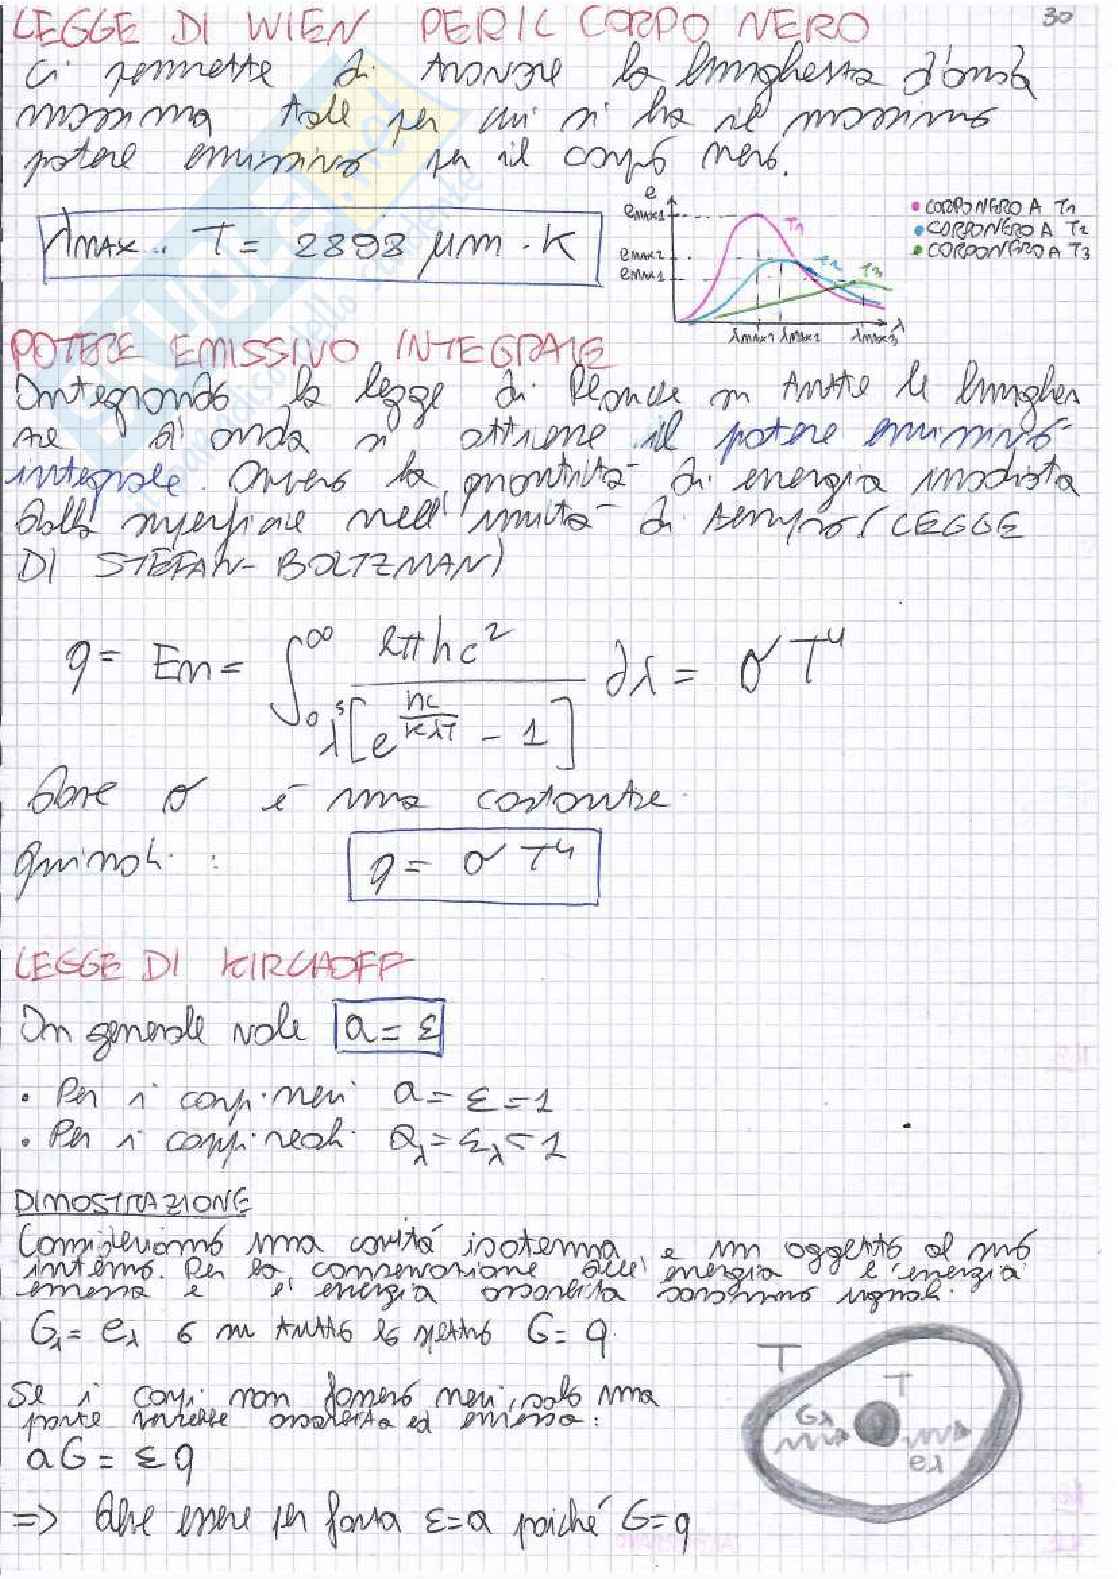 30
LEGGE DI WIEN PER IL CORPO NERO
Ci permette di trovare la lunghezza d'onda
massima tale per cui si ha il massimo
potere emissivo per il corpo nero.
λMAX · T = 2898 μm · K
e
eMAX1
eMAX2
eMAX1
T1
T2
T3
λMAX1 λMAX2 λMAX3 λ
• CORPO NERO A T1
• CORPO NERO A T2
• CORPO NERO A T3
POTERE EMISSIVO INTEGRALE
Integrando la legge di Planck in tutte le lunghez
ze d'onda si ottiene il potere emissivo
integrale. Ovvero la quantità di energia irradiata
dalla superficie nell'unità di tempo (LEGGE
DI STEFAN-BOLTZMAN)
q = En = ∫₀^∞ 2πhc² / λ⁵[e^(hc/kλT) - 1] ∂λ = σT⁴
dove σ è una costante.
Quindi : q = σT⁴
LEGGE DI KIRCHOFF
In generale vale a = ε
• Per i corpi neri a = ε = 1
• Per i corpi reali aλ = ελ < 1
DIMOSTRAZIONE
Consideriamo una cavità isoterma, e un oggetto al suo
interno. Per la conservazione dell'energia l'energia
emessa e l'energia assorbita saranno uguali.
Gλ = eλ o su tutto lo spettro G = q.
Se i corpi non fossero neri, solo una
parte verrebbe assorbita ed emessa:
aG = εq
=> deve essere per forza ε=a poiché G=q
T
T
Gλ
eλ